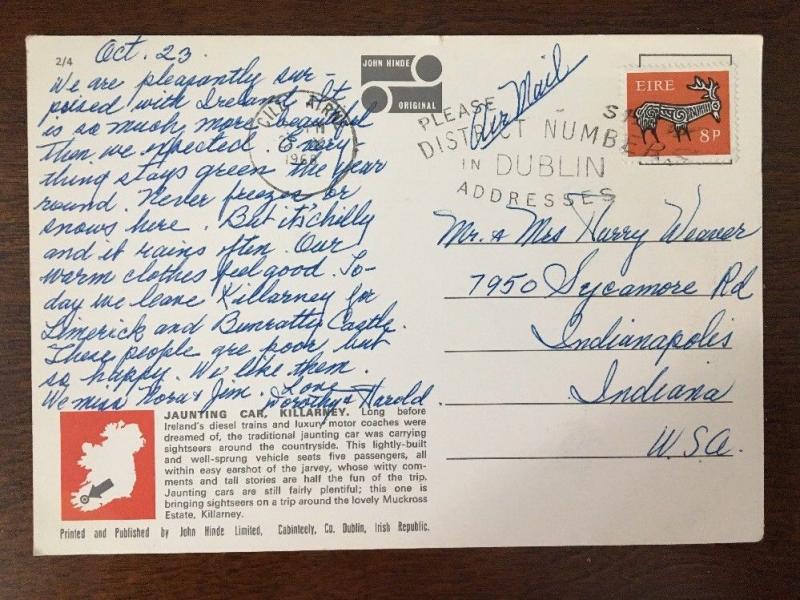 2/4
Oct. 23
We are pleasantly sur-
prised with Ireland. It
is so much more beautiful
then we expected. Every
thing stays green the year
round. Never freezes or
snows here. But it's chilly
and it rains often. Our
warm clothes feel good. To-
day we leave Killarney for
Limerick and Bunratty Castle.
These people are poor but
so happy. We like them.
We miss Nora & Jim. Love
Dorothy & Harold
JAUNTING CAR, KILLARNEY. Long before
Ireland's diesel trains and luxury motor coaches were
dreamed of, the traditional jaunting car was carrying
sightseers around the countryside. This lightly-built
and well-sprung vehicle seats five passengers, all
within easy earshot of the jarvey, whose witty com-
ments and tall stories are half the fun of the trip.
Jaunting cars are still fairly plentiful; this one is
bringing sightseers on a trip around the lovely Muckross
Estate, Killarney.
Printed and Published by John Hinde Limited, Cabinteely, Co. Dublin, Irish Republic.
JOHN HINDE
ORIGINAL
CILL AIRNE
PLEASE
DISTRICT NUMBER
IN DUBLIN
ADDRESSES
Air Mail
EIRE
8P
Mr. & Mrs Harry Weaver
7950 Sycamore Rd
Indianapolis
Indiana
U.S.A.